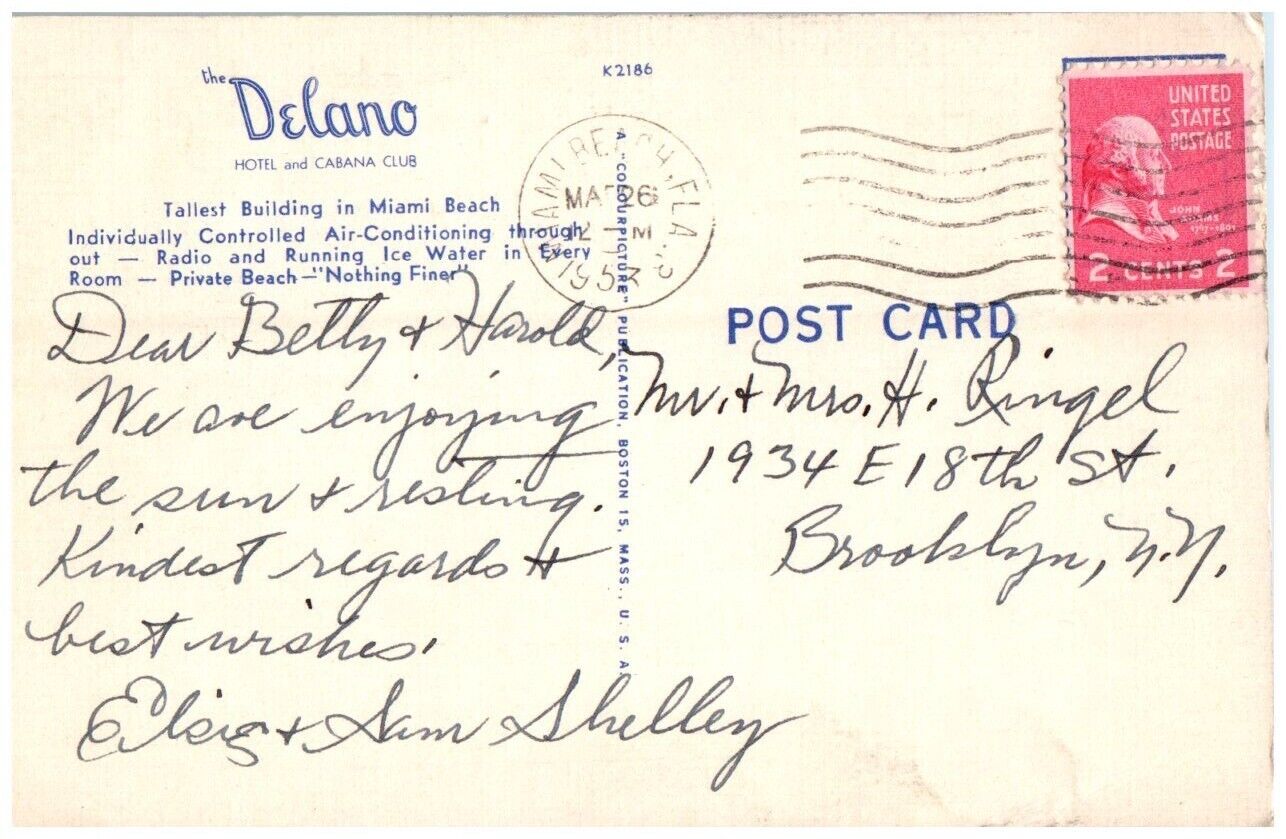 the
Delano
HOTEL and CABANA CLUB
Tallest Building in Miami Beach
Individually Controlled Air-Conditioning through
out — Radio and Running Ice Water in Every
Room — Private Beach — "Nothing Finer"
Dear Betty & Harold,
We are enjoying
the sun & resting.
Kindest regards &
best wishes.
Elsie & Sam Shelley
K2186
A "COLOURPICTURE" PUBLICATION, BOSTON 15, MASS., U. S. A
MIAMI BEACH, FLA.
MAR 26
12 PM
1953
UNITED
STATES
POSTAGE
JOHN
ADAMS
1797-1801
2 CENTS 2
POST CARD
Mr. & Mrs. H. Ringel
1934 E 18th St.
Brooklyn, N.Y.